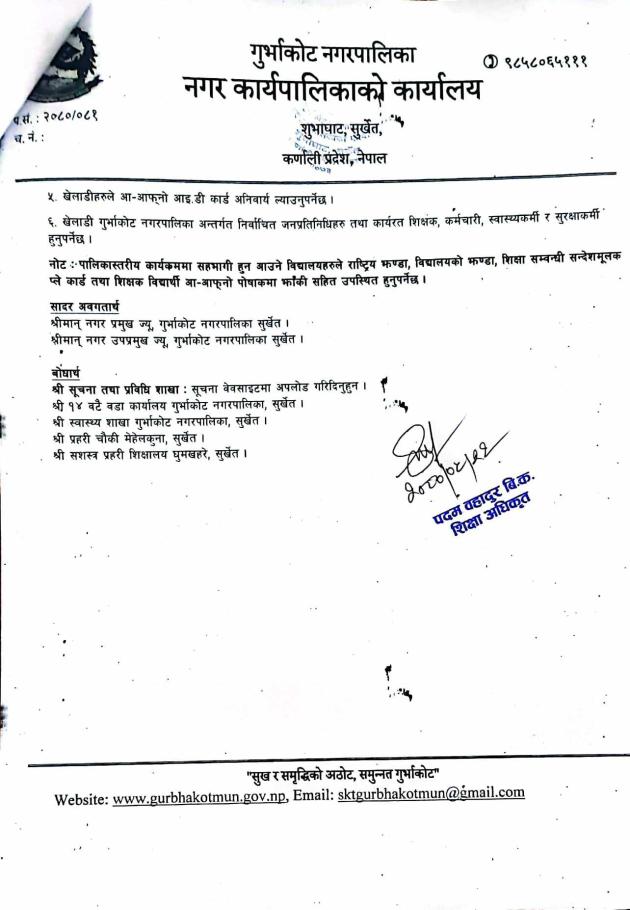 गुर्भाकोट नगरपालिका
✆ ९८५८०६५१११
नगर कार्यपालिकाको कार्यालय
प.सं. : २०८०/०८१
च. नं. :
शुभाघाट, सुर्खेत,
कर्णाली प्रदेश, नेपाल
५. खेलाडीहरुले आ-आफ्नो आइ.डी कार्ड अनिवार्य ल्याउनुपर्नेछ ।
६. खेलाडी गुर्भाकोट नगरपालिका अन्तर्गत निर्वाचित जनप्रतिनिधिहरु तथा कार्यरत शिक्षक, कर्मचारी, स्वास्थ्यकर्मी र सुरक्षाकर्मी
हुनुपर्नेछ ।
नोट :-पालिकास्तरीय कार्यक्रममा सहभागी हुन आउने विद्यालयहरुले राष्ट्रिय झण्डा, विद्यालयको झण्डा, शिक्षा सम्बन्धी सन्देशमूलक
प्ले कार्ड तथा शिक्षक विद्यार्थी आ-आफ्नो पोषाकमा झाँकी सहित उपस्थित हुनुपर्नेछ ।
सादर अवगतार्थ
श्रीमान् नगर प्रमुख ज्यू, गुर्भाकोट नगरपालिका सुर्खेत ।
श्रीमान् नगर उपप्रमुख ज्यू, गुर्भाकोट नगरपालिका सुर्खेत ।
बोधार्थ
श्री सूचना तथा प्रविधि शाखा : सूचना वेवसाइटमा अपलोड गरिदिनुहुन ।
श्री १४ वटै वडा कार्यालय गुर्भाकोट नगरपालिका, सुर्खेत ।
श्री स्वास्थ्य शाखा गुर्भाकोट नगरपालिका, सुर्खेत ।
श्री प्रहरी चौकी मेहेलकुना, सुर्खेत ।
श्री सशस्त्र प्रहरी शिक्षालय घुमखहरे, सुर्खेत ।
पदम वहादुर बि.क.
शिक्षा अधिकृत
"सुख र समृद्धिको अठोट, समुन्नत गुर्भाकोट"
Website: www.gurbhakotmun.gov.np, Email: sktgurbhakotmun@gmail.com